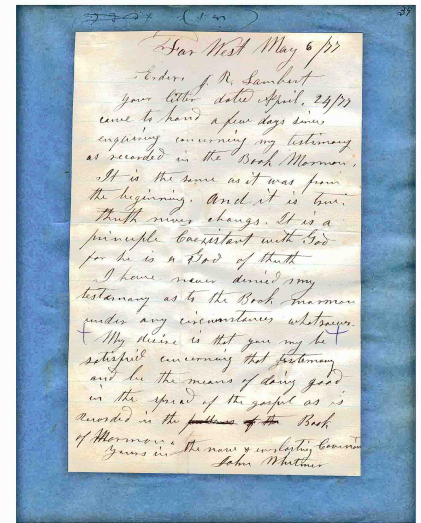 39
Far West May 6/77
Elder J R. Lambert
your letter dated April. 24/77
came to hand a few days since
enquiring concerning my testimony
as recorded in the Book Mormon,
It is the same as it was from
the beginning. And it is true.
thuth never changs. It is a
principle Coexistant with God
for he is a God of thuth
I have never denied my
testamony as to the Book mormon
under any circumstances whatsoever.
My desire is that you my be
satisfied concerning that testimony
and be the means of doing good
in the spread of the gospel as is
recorded in the of the Book
of Mormon.
Yours in the new & everlasting Covenan
John Whitmer